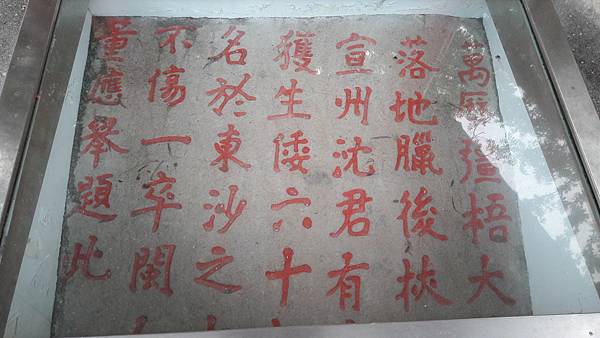 萬曆彊梧大
落地臘後挾
宣州沈君有
獲生倭六十
名於東沙之
不傷一卒閩
董應舉題此